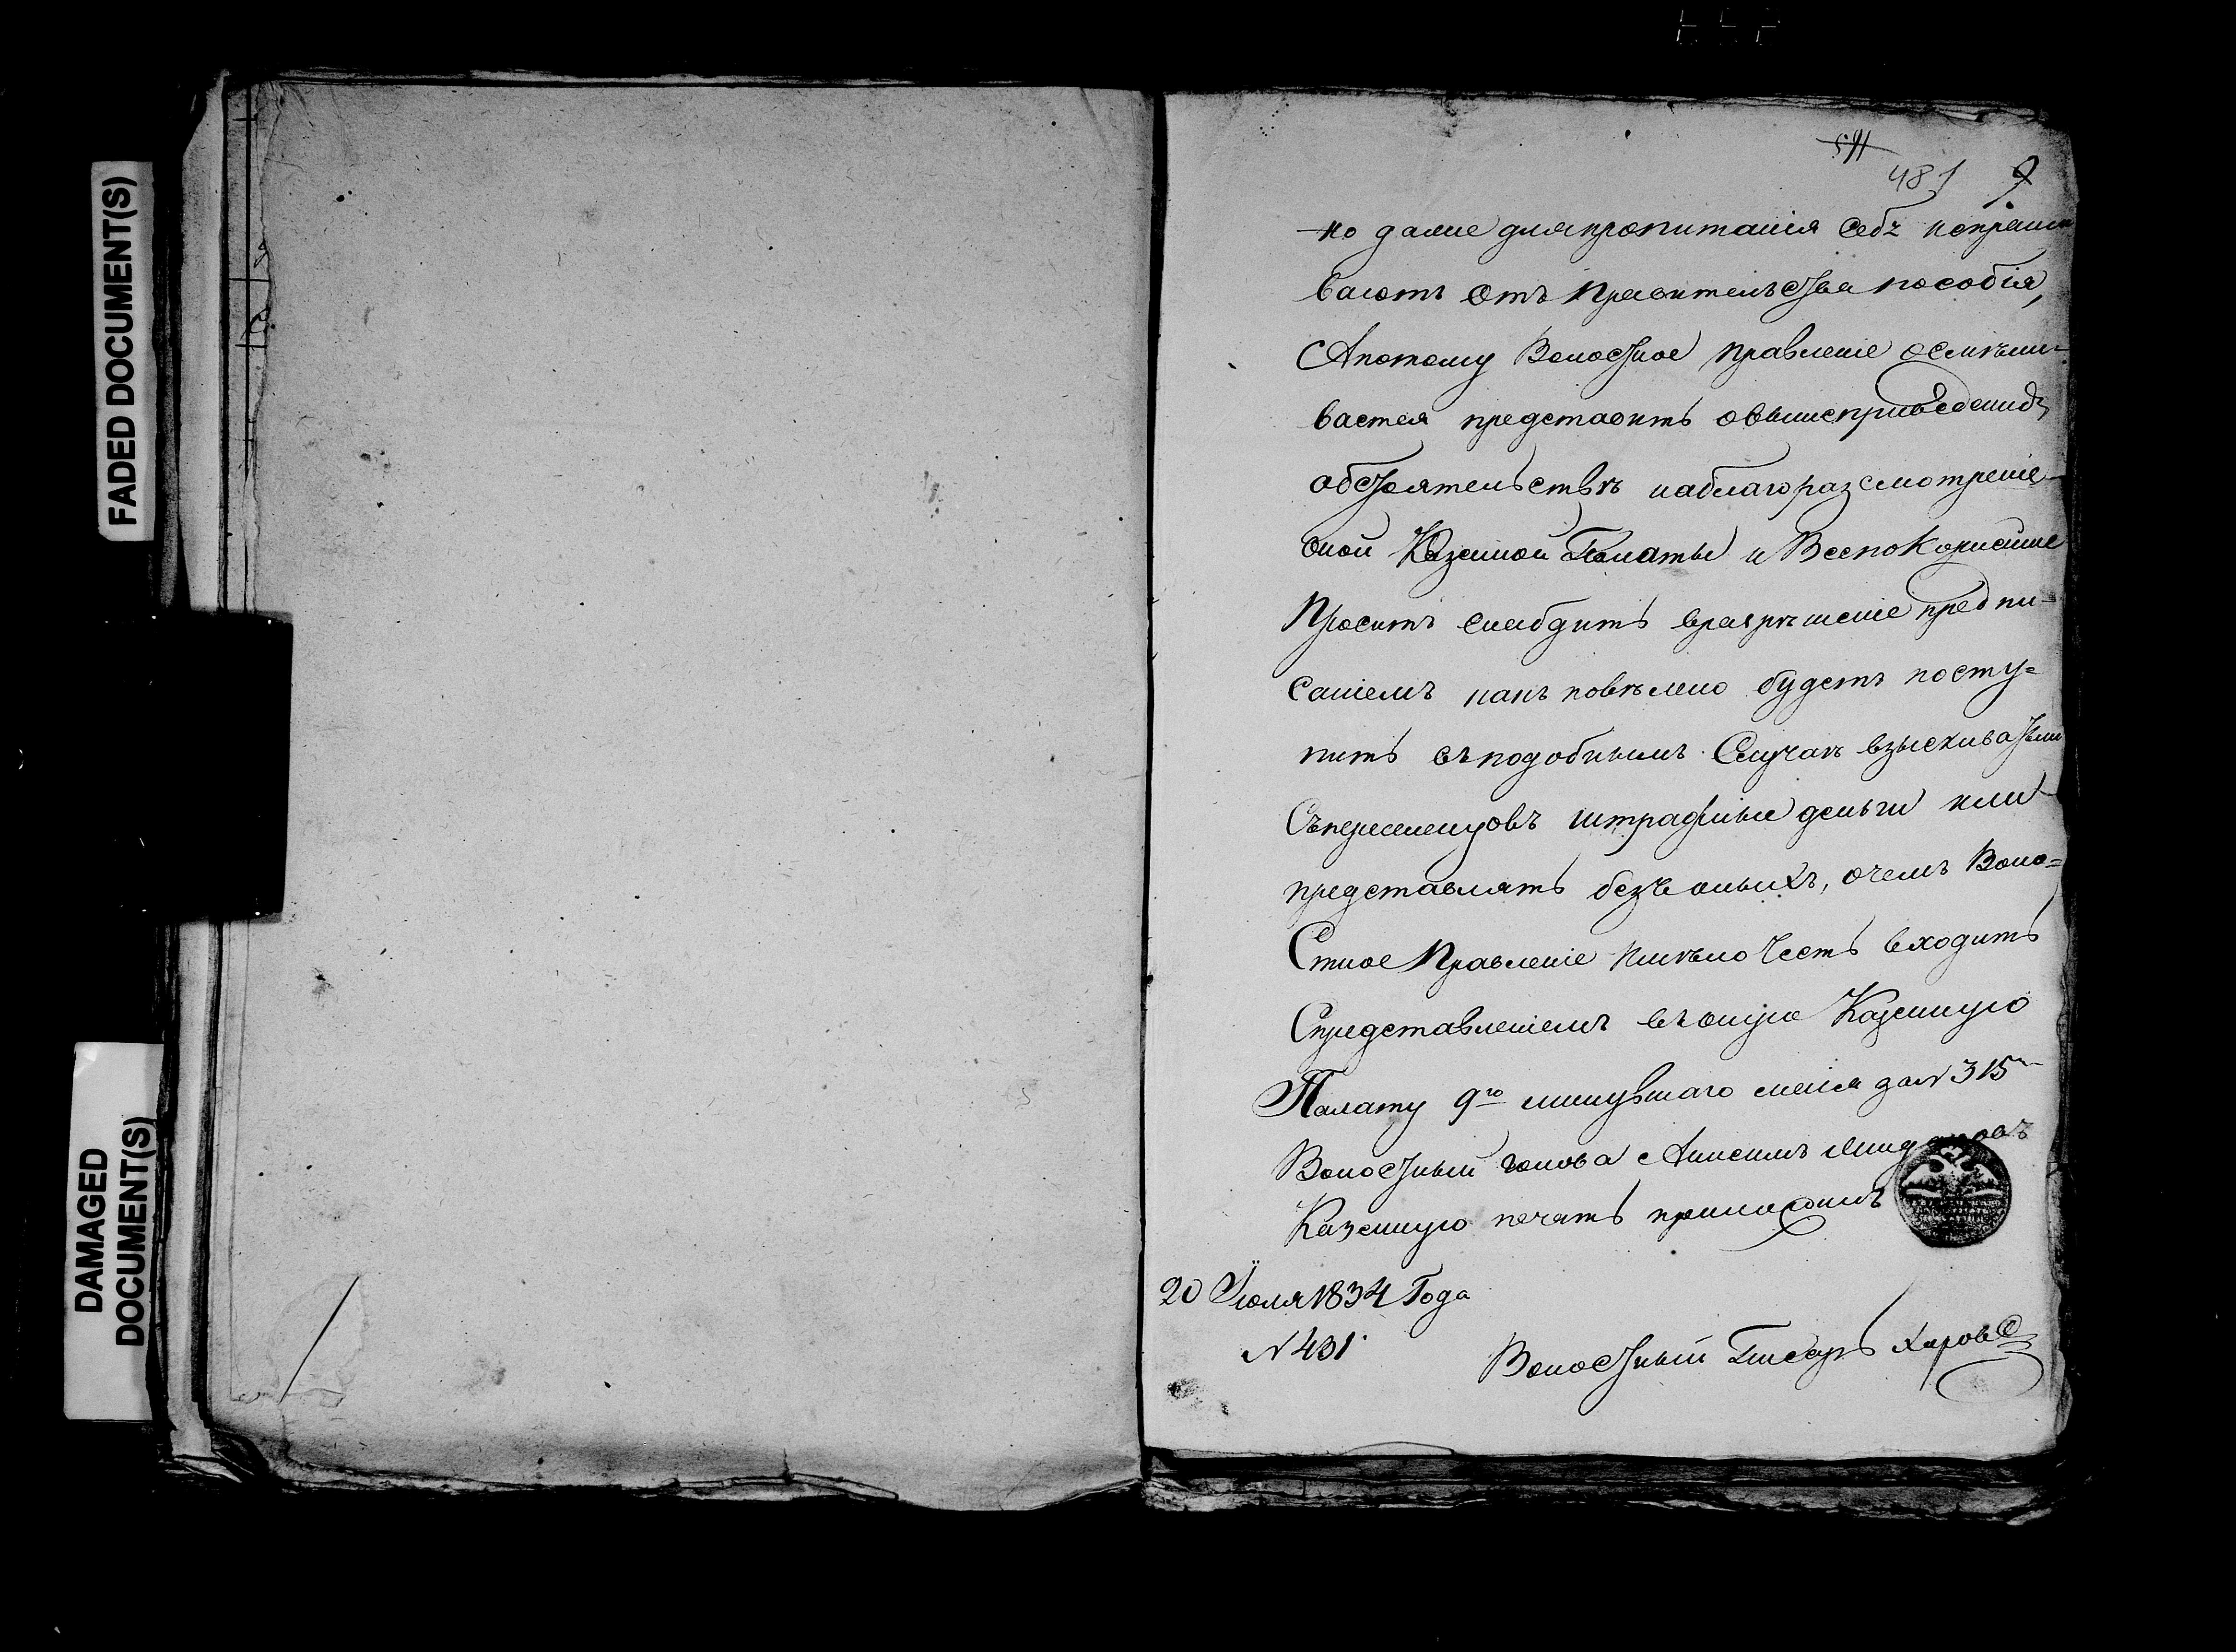 FADED DOCUMENT(S)
DAMAGED
DOCUMENT(S)
511
481 9
но даже для пропитанія себѣ испраши
ваютъ отъ правительства пособія,
А потому Волостное Правленіе осмѣли-
вается представить о вышеприведенныхъ
обстоятельствѣ на благоразсмотреніе
оной Казенной Палаты и Всепокорнейше
Проситъ снабдить вразрѣшеніе предпи-
саніемъ какъ повѣлено будетъ посту=
пить въ подобнымъ Случаѣ взыскивать ли
Съ переселенцовъ штрафныя деньги или
представлять безъ оныхъ, о чемъ Воло=
Стное Правленіе имѣло Честь входить
Спредставленіемъ въ оную Казенную
Палату 9го минувшаго маія за № 315м
Волостный голова Анисимъ
Казенную печать приложилъ
20 Іюля 1834 Года
№ 431
Волостный Писарь